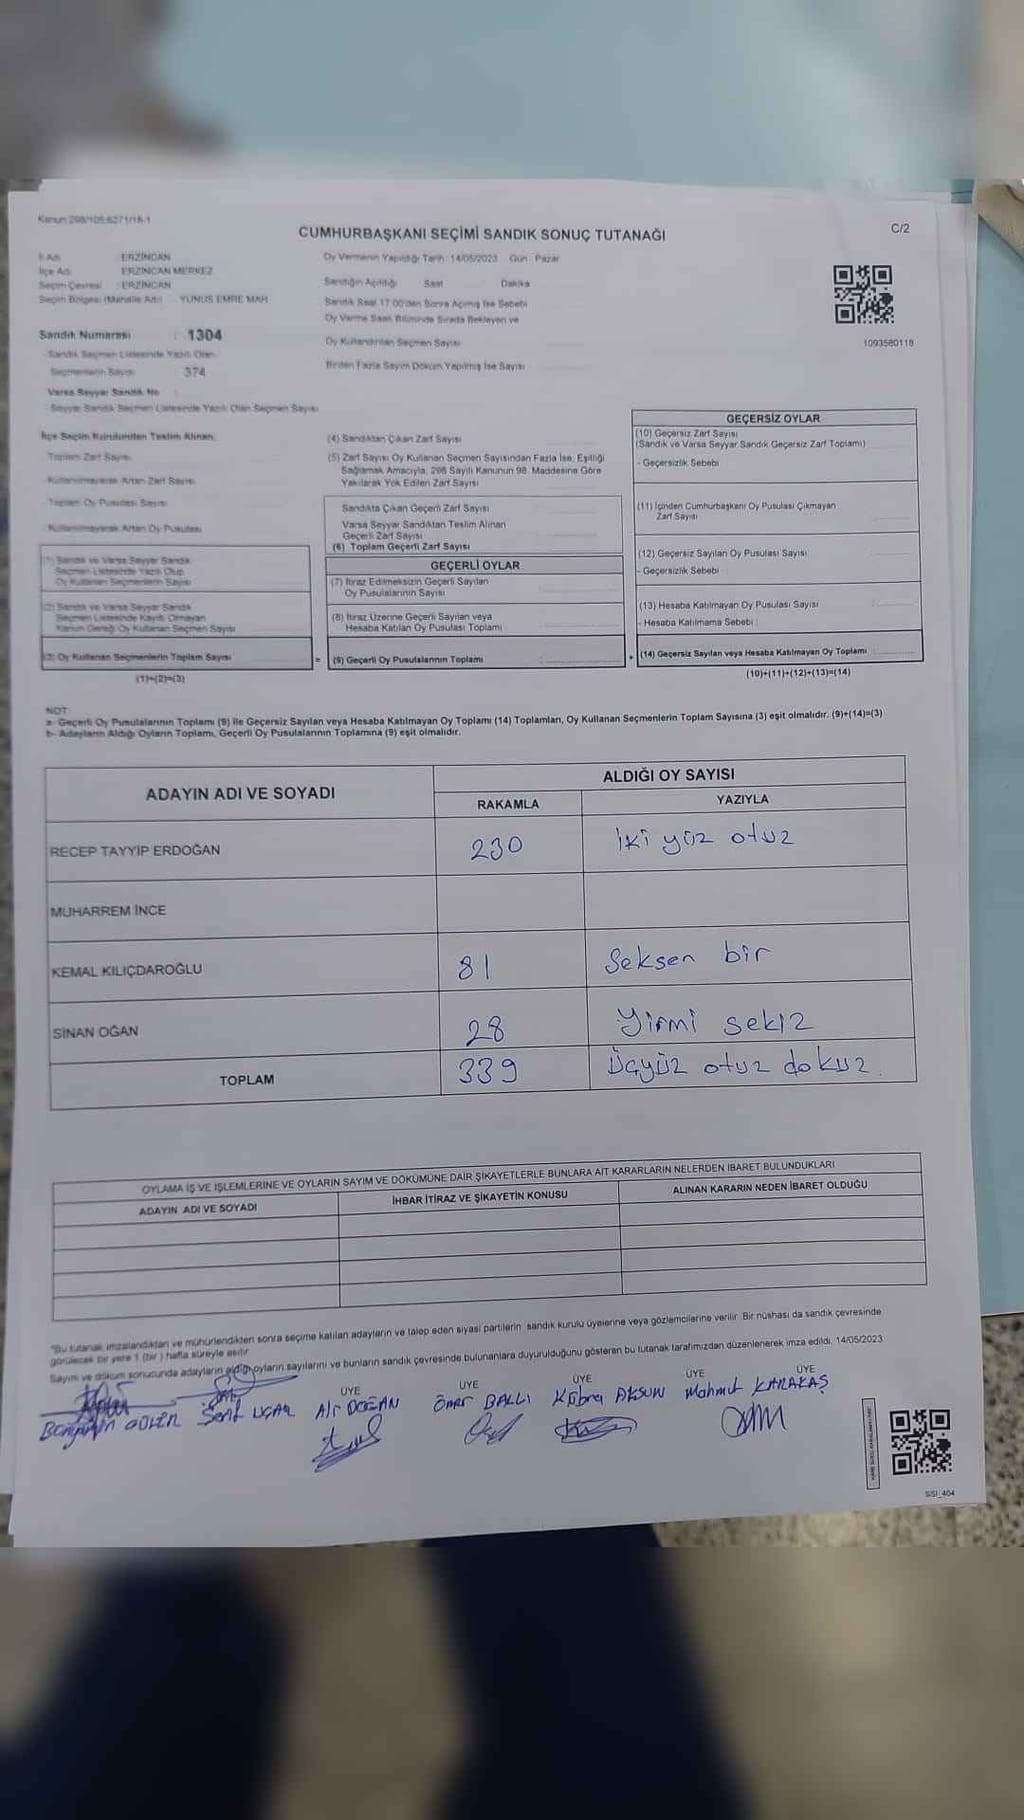 Kanun:298/105;6271/16-1
CUMHURBAŞKANI SEÇİMİ SANDIK SONUÇ TUTANAĞI
C/2
İl Adı : ERZİNCAN
İlçe Adı : ERZİNCAN MERKEZ
Seçim Çevresi : ERZİNCAN
Seçim Bölgesi (Mahalle Adı) : YUNUS EMRE MAH
Sandık Numarası : 1304
- Sandık Seçmen Listesinde Yazılı Olan
Seçmenlerin Sayısı : 374
Varsa Seyyar Sandık No
- Seyyar Sandık Seçmen Listesinde Yazılı Olan Seçmen Sayısı
Oy Vermenin Yapıldığı Tarih: 14/05/2023 Gün : Pazar
Sandığın Açıldığı Saat Dakika
Sandık Saat 17.00'den Sonra Açılmış İse Sebebi
Oy Verme Saati Bitiminde Sırada Bekleyen ve
Oy Kullandırılan Seçmen Sayısı
Birden Fazla Sayım Döküm Yapılmış İse Sayısı
1093580118
İlçe Seçim Kurulundan Teslim Alınan;
Toplam Zarf Sayısı
- Kullanılmayarak Artan Zarf Sayısı
- Toplam Oy Pusulası Sayısı
- Kullanılmayarak Artan Oy Pusulası
(1) Sandık ve Varsa Seyyar Sandık
Seçmen Listesinde Yazılı Olup
Oy Kullanan Seçmenlerin Sayısı
(2) Sandık ve Varsa Seyyar Sandık
Seçmen Listesinde Kayıtlı Olmayan
Kanun Gereği Oy Kullanan Seçmen Sayısı
(3) Oy Kullanan Seçmenlerin Toplam Sayısı
(1)+(2)=(3)
(4) Sandıktan Çıkan Zarf Sayısı
(5) Zarf Sayısı Oy Kullanan Seçmen Sayısından Fazla İse; Eşitliği
Sağlamak Amacıyla, 298 Sayılı Kanunun 98. Maddesine Göre
Yakılarak Yok Edilen Zarf Sayısı
Sandıkta Çıkan Geçerli Zarf Sayısı
Varsa Seyyar Sandıktan Teslim Alınan
Geçerli Zarf Sayısı
(6) Toplam Geçerli Zarf Sayısı
GEÇERLİ OYLAR
(7) İtiraz Edilmeksizin Geçerli Sayılan
Oy Pusulalarının Sayısı
(8) İtiraz Üzerine Geçerli Sayılan veya
Hesaba Katılan Oy Pusulası Toplamı
= (9) Geçerli Oy Pusulalarının Toplamı
GEÇERSİZ OYLAR
(10) Geçersiz Zarf Sayısı
(Sandık ve Varsa Seyyar Sandık Geçersiz Zarf Toplamı)
- Geçersizlik Sebebi
(11) İçinden Cumhurbaşkanı Oy Pusulası Çıkmayan
Zarf Sayısı
(12) Geçersiz Sayılan Oy Pusulası Sayısı
- Geçersizlik Sebebi
(13) Hesaba Katılmayan Oy Pusulası Sayısı
- Hesaba Katılmama Sebebi
+ (14) Geçersiz Sayılan veya Hesaba Katılmayan Oy Toplamı
(10)+(11)+(12)+(13)=(14)
NOT:
a- Geçerli Oy Pusulalarının Toplamı (9) ile Geçersiz Sayılan veya Hesaba Katılmayan Oy Toplamı (14) Toplamları, Oy Kullanan Seçmenlerin Toplam Sayısına (3) eşit olmalıdır. (9)+(14)=(3)
b- Adayların Aldığı Oyların Toplamı, Geçerli Oy Pusulalarının Toplamına (9) eşit olmalıdır.
ADAYIN ADI VE SOYADI
ALDIĞI OY SAYISI
RAKAMLA YAZIYLA
RECEP TAYYİP ERDOĞAN 230 iki yüz otuz
MUHARREM İNCE
KEMAL KILIÇDAROĞLU 81 Seksen bir
SİNAN OĞAN 28 Yirmi sekiz
TOPLAM 339 Üçyüz otuz dokuz.
OYLAMA İŞ VE İŞLEMLERİNE VE OYLARIN SAYIM VE DÖKÜMÜNE DAİR ŞİKAYETLERLE BUNLARA AİT KARARLARIN NELERDEN İBARET BULUNDUKLARI
ADAYIN ADI VE SOYADI İHBAR İTİRAZ VE ŞİKAYETİN KONUSU ALINAN KARARIN NEDEN İBARET OLDUĞU
"Bu tutanak imzalandıktan ve mühürlendikten sonra seçime katılan adayların ve talep eden siyasi partilerin sandık kurulu üyelerine veya gözlemcilerine verilir. Bir nüshası da sandık çevresinde
görülecek bir yere 1 (bir ) hafta süreyle asılır.
Sayım ve döküm sonucunda adayların aldığı oyların sayılarını ve bunların sandık çevresinde bulunanlara duyurulduğunu gösteren bu tutanak tarafımızdan düzenlenerek imza edildi. 14/05/2023
ÜYE ÜYE ÜYE ÜYE ÜYE
GÜLER UÇAR Ali DOĞAN Ömer BALLI Kübra AKSUN Mahmut KARAKAŞ
SİSİ_404